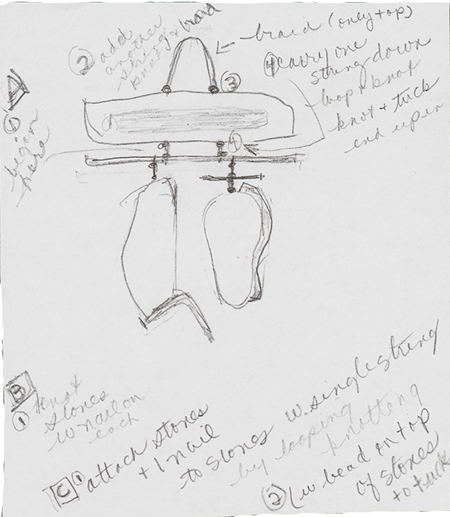 A
① begin
here
② add
another
string
knot & braid
← braid (only & top)
③
④ carry one
string down
loop & knot
knot & tuck
end up in
④
B
① knot
stones
w nail on
each
C ① attach stones
+ 1 nail
to stones w. single string
by looping
knotting
② (w bead on top
of stones
to tuck